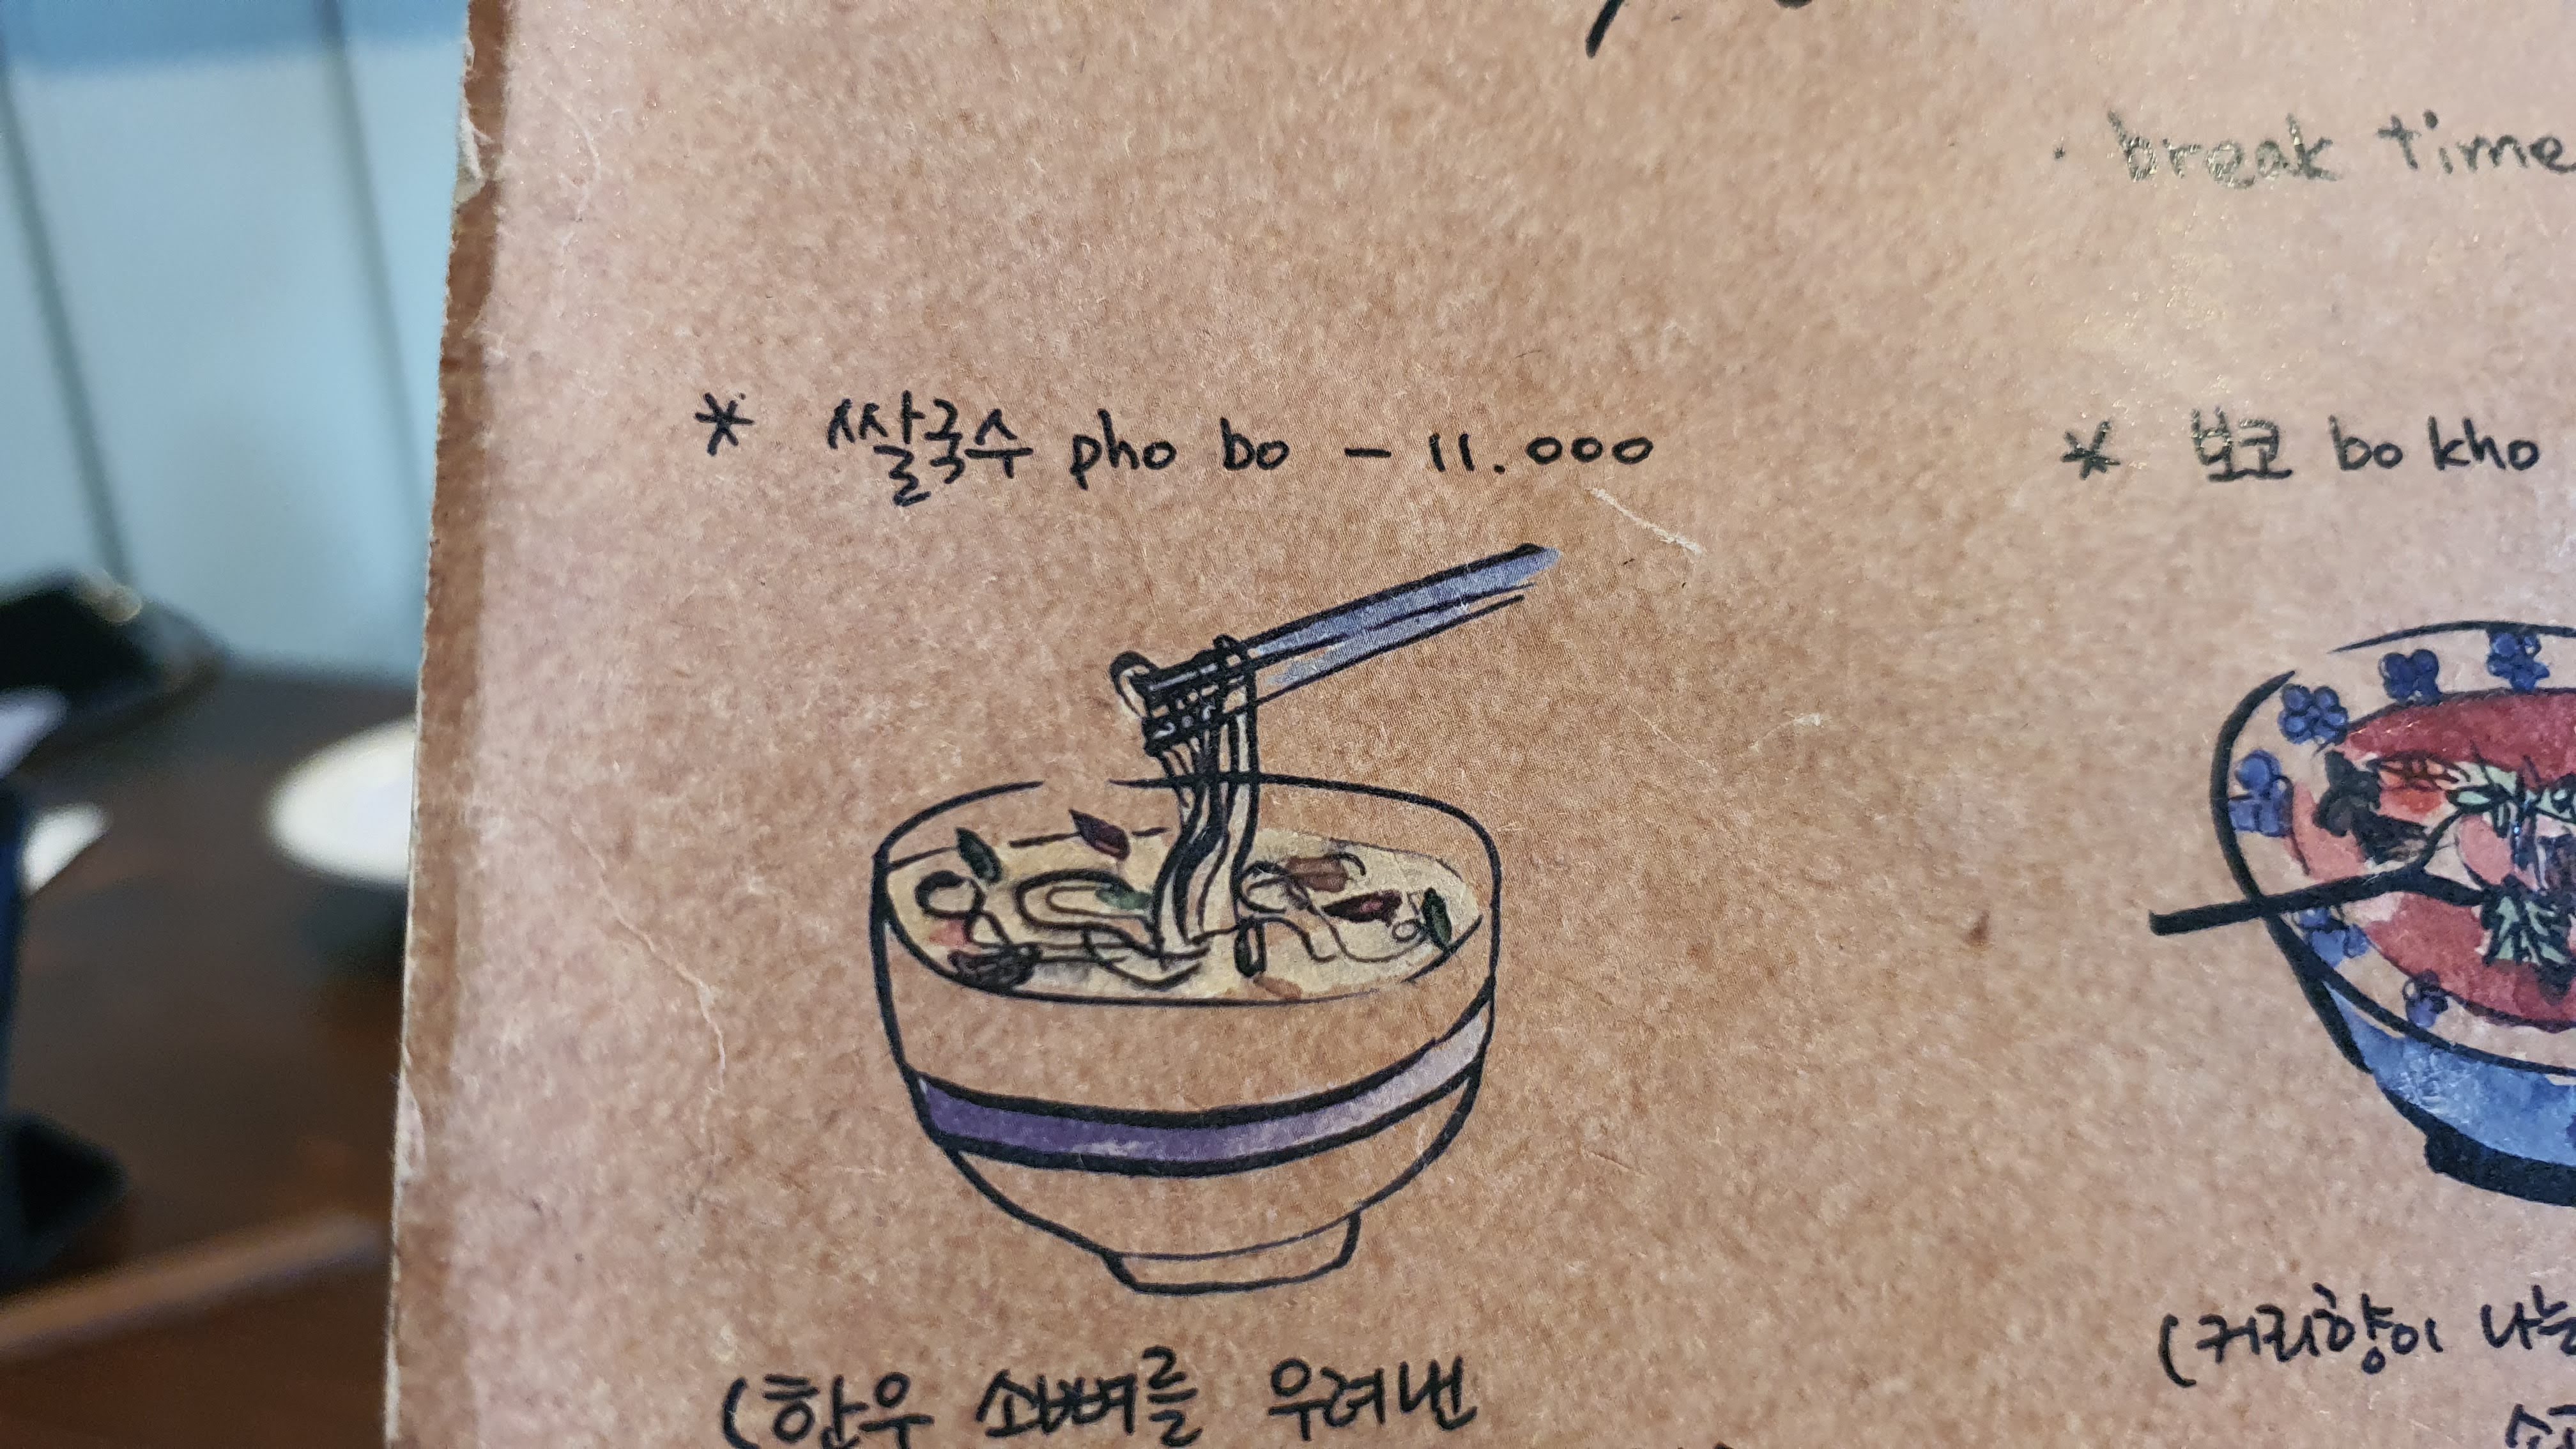 · break time
* 쌀국수 pho bo - 11.000
* 보코 bo kho
(한우 소뼈를 우려낸
(커리향이 나는